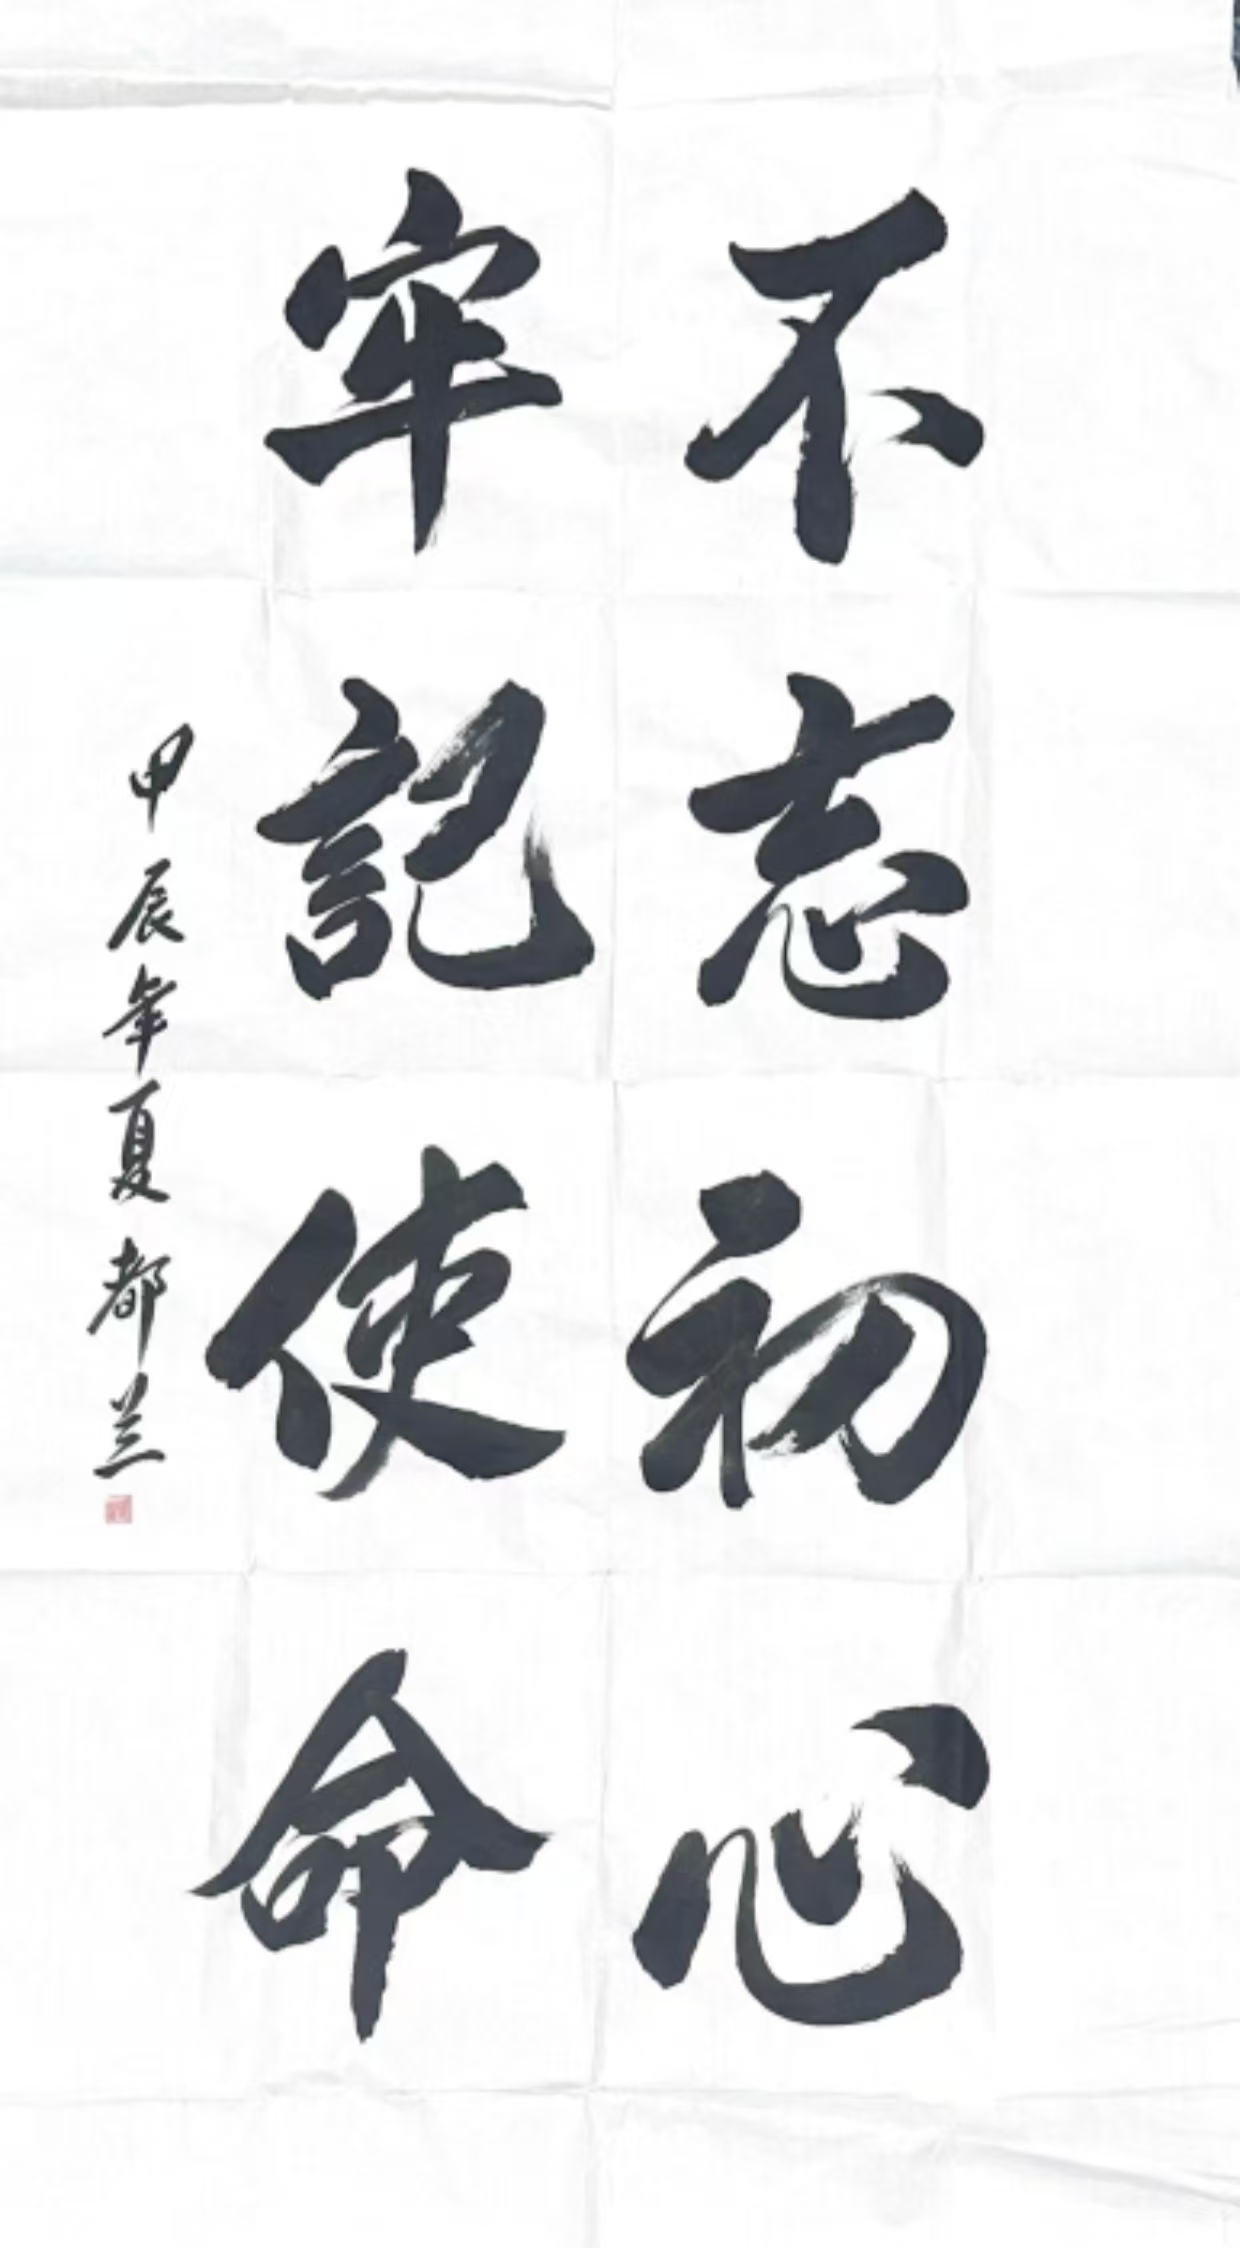 不忘初心
牢記使命
甲辰年夏都兰